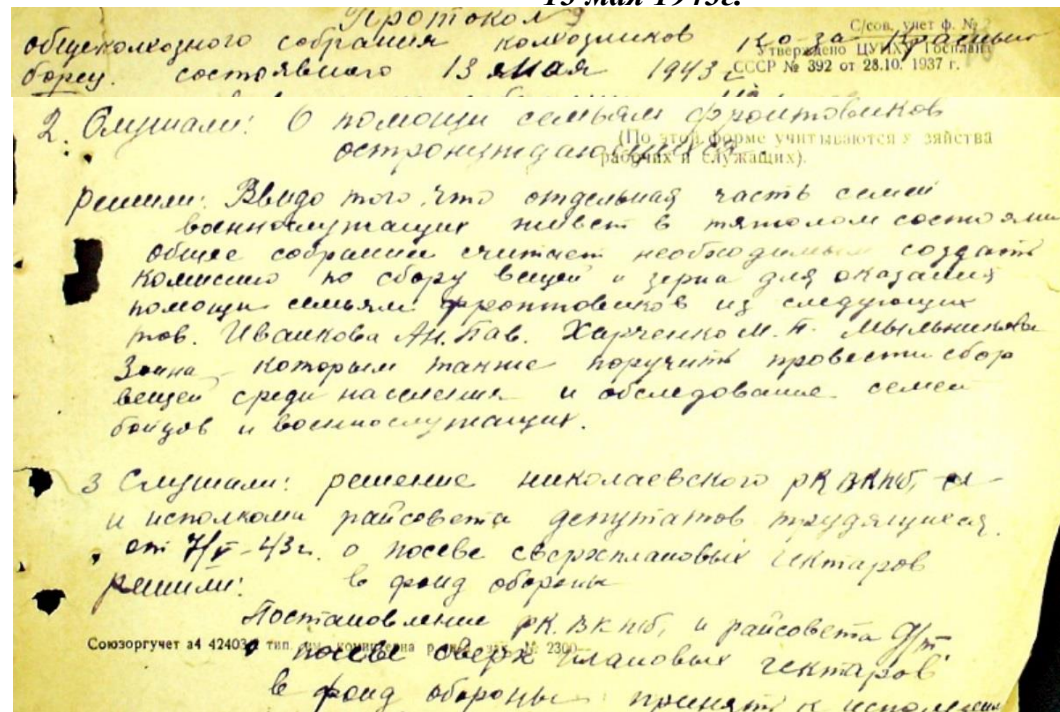 13 мая 1943г.
Протокол 9
общеколхозного собрания колхозников к-за Красный
борец. состоявшего 13 мая 1943 г.
С/сов. учет ф. №
Утверждено ЦУНХУ Госплана
СССР № 392 от 28.10. 1937 г.
2. Слушали: О помощи семьям фронтовиков
остронуждающимся
(По этой форме учитываются х зяйства
рабочих и служащих).
решили: Ввидо того, что отдельная часть семей
военнослужащих живет в тяжолом состоянии
общее собрание считает необходимым создать
комиссию по сбору вещей и зерна для оказания
помощи семьям фронтовиков из следующих
тов. Иванкова Ан. Пав. Харченко М. П. Мыльникова
Зоина которым также поручить провести сбор
вещей среди населения и обследование семей
бойцов и военнослужащих.
3 Слушали: решение николаевского рК ВКпб,
и исполкома райсовета депутатов трудящихся
от 7/V-43г. о посеве сверхплановых гектаров
решили: в фонд обороны
Постановление рК. ВКпб, и райсовета д/т
Союзоргучет а4 42403 тип. зак. № 2300
о посеве сверх плановых гектаров
в фонд обороны принять к исполнению